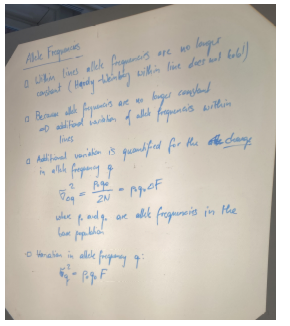 Allele Frequencies
□ Within lines allele frequencies are no longer
constant (Hardy-Weinberg within line does not hold!)
□ Because allele frequencies are no longer constant
⇒ additional variation of allele frequencies within
lines
□ Additional variation is quantified for the change
in allele frequency q
σ²_Δq = p₀q₀ / 2N = p₀q₀ ΔF
where p₀ and q₀ are allele frequencies in the
base population
□ Variation in allele frequency q:
σ²_q = p₀q₀ F